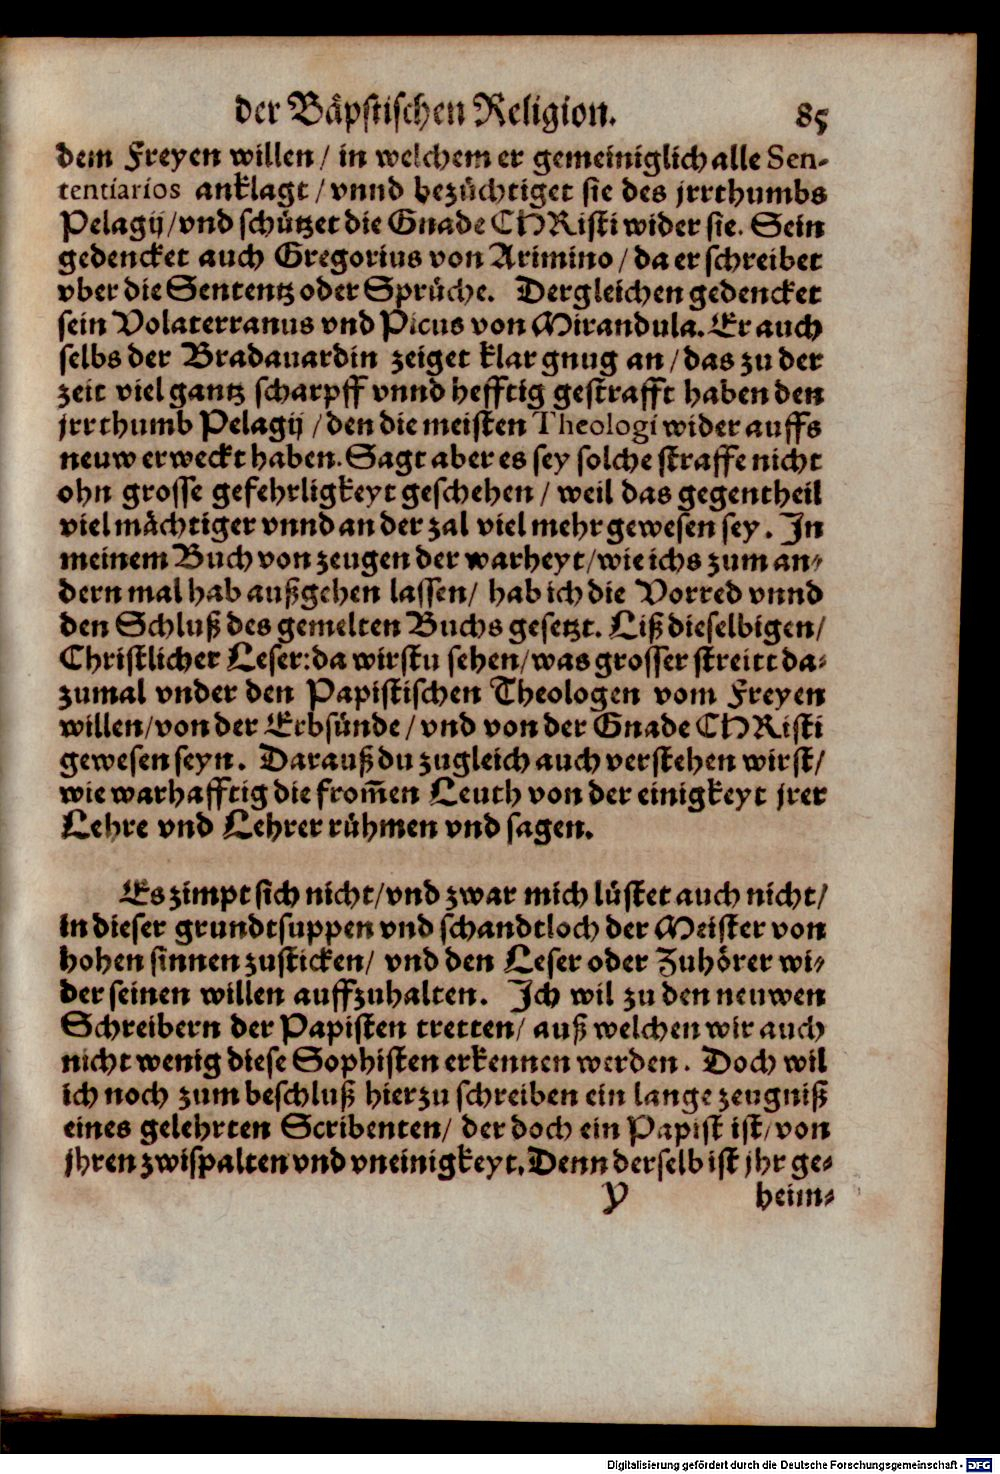 der Bäpstischen Religion. 85
dem Freyen willen / in welchem er gemeiniglich alle Sen-
tentiarios anklagt / vnnd bezüchtiget sie des jrrthumbs
Pelagij / vnd schützet die Gnade CHRisti wider sie. Sein
gedencket auch Gregorius von Arimino / da er schreibet
vber die Sententz oder Sprüche. Dergleichen gedencket
sein Volaterranus vnd Picus von Mirandula. Er auch
selbs der Bradauardin zeiget klar gnug an / das zu der
zeit viel gantz scharpff vnnd hefftig gestrafft haben den
jrrthumb Pelagij / den die meisten Theologi wider auffs
neuw erweckt haben. Sagt aber es sey solche straffe nicht
ohn grosse gefehrligkeyt geschehen / weil das gegentheil
viel mächtiger vnnd an der zal viel mehr gewesen sey. In
meinem Buch von zeugen der warheyt / wie ichs zum an-
dern mal hab außgehen lassen / hab ich die Vorred vnnd
den Schluß des gemelten Buchs gesetzt. Liß dieselbigen /
Christlicher Leser: da wirstu sehen / was grosser streitt da-
zumal vnder den Papistischen Theologen vom Freyen
willen / von der Erbsünde / vnd von der Gnade CHRisti
gewesen seyn. Darauß du zugleich auch verstehen wirst /
wie warhafftig die from̃en Leuth von der einigkeyt jrer
Lehre vnd Lehrer rühmen vnd sagen.
Es zimpt sich nicht / vnd zwar mich lüstet auch nicht /
in dieser grundtsuppen vnd schandtloch der Meister von
hohen sinnen zusticken / vnd den Leser oder Zuhörer wi-
der seinen willen auffzuhalten. Ich wil zu den neuwen
Schreibern der Papisten tretten / auß welchen wir auch
nicht wenig diese Sophisten erkennen werden. Doch wil
ich noch zum beschluß hierzu schreiben ein lange zeugniß
eines gelehrten Scribenten / der doch ein Papist ist / von
jhren zwispalten vnd vneinigkeyt. Denn derselb ist jhr ge-
Y heim-
Digitalisierung gefördert durch die Deutsche Forschungsgemeinschaft - DFG